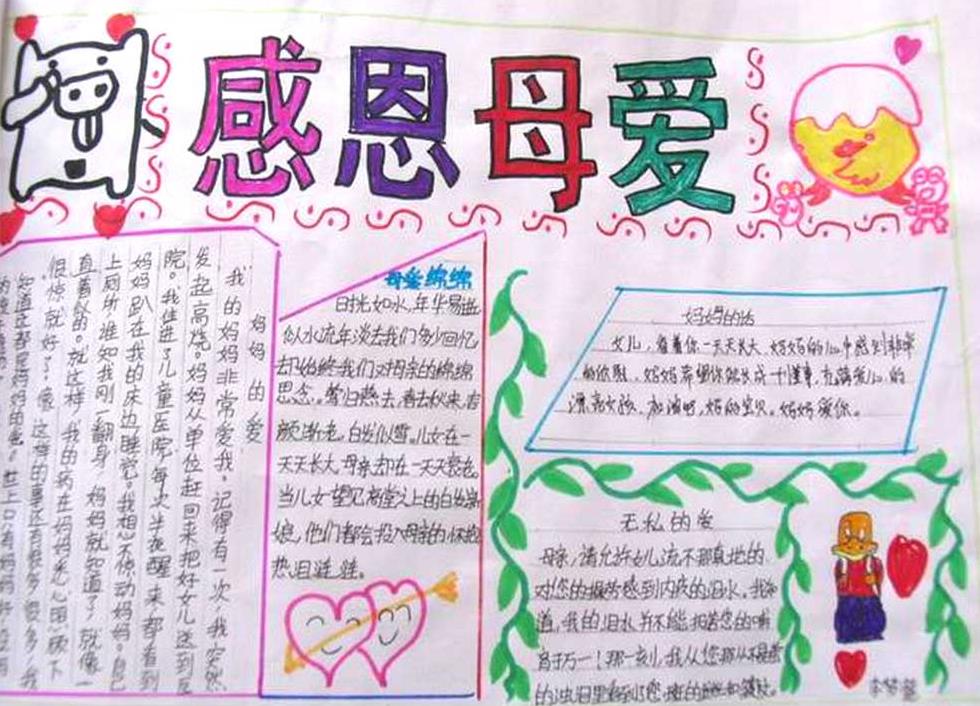 感恩母爱
妈妈的爱
我的妈妈非常爱我。记得有一次,我突然
发起高烧。妈妈从单位赶回来把好女儿送到医
院。我住进了儿童医院,每次半夜醒来都看到
妈妈趴在我的床边睡觉。我想不惊动妈妈。自己
上厕所,谁知我刚一翻身,妈妈就知道了,就像一
直着似的。就这样,我的病在妈妈悉心照顾下
很快就好了。像这样的事还有很多很多,我
知道这都是妈妈的爱。世上只有妈妈好
母爱绵绵
时光如水,年华易逝
似水流年淡去我们多少回忆,
却始终我们对母亲的绵绵
思念。莺归燕去,春去秋来,容
颜渐老。白发似雪。儿女在一
天天长大,母亲却在一天天衰老。
当儿女望见高堂之上的白发亲
娘,他们都会投入母亲的怀抱
热泪涟涟。
妈妈的话
女儿,看着你一天天长大,妈妈的心中感到非常
的欣慰,妈妈希望你能长成一个懂事,充满爱心的
漂亮女孩,加油吧,妈的宝贝。妈妈爱你。
无私的爱
母亲,请允许女儿流不那真挚的
对您的操劳感到内疚的泪水,我知
道,我的泪水并不能报答您的哺
育于万一!那一刻,我从您那
的浊泪里看到了您
李梦